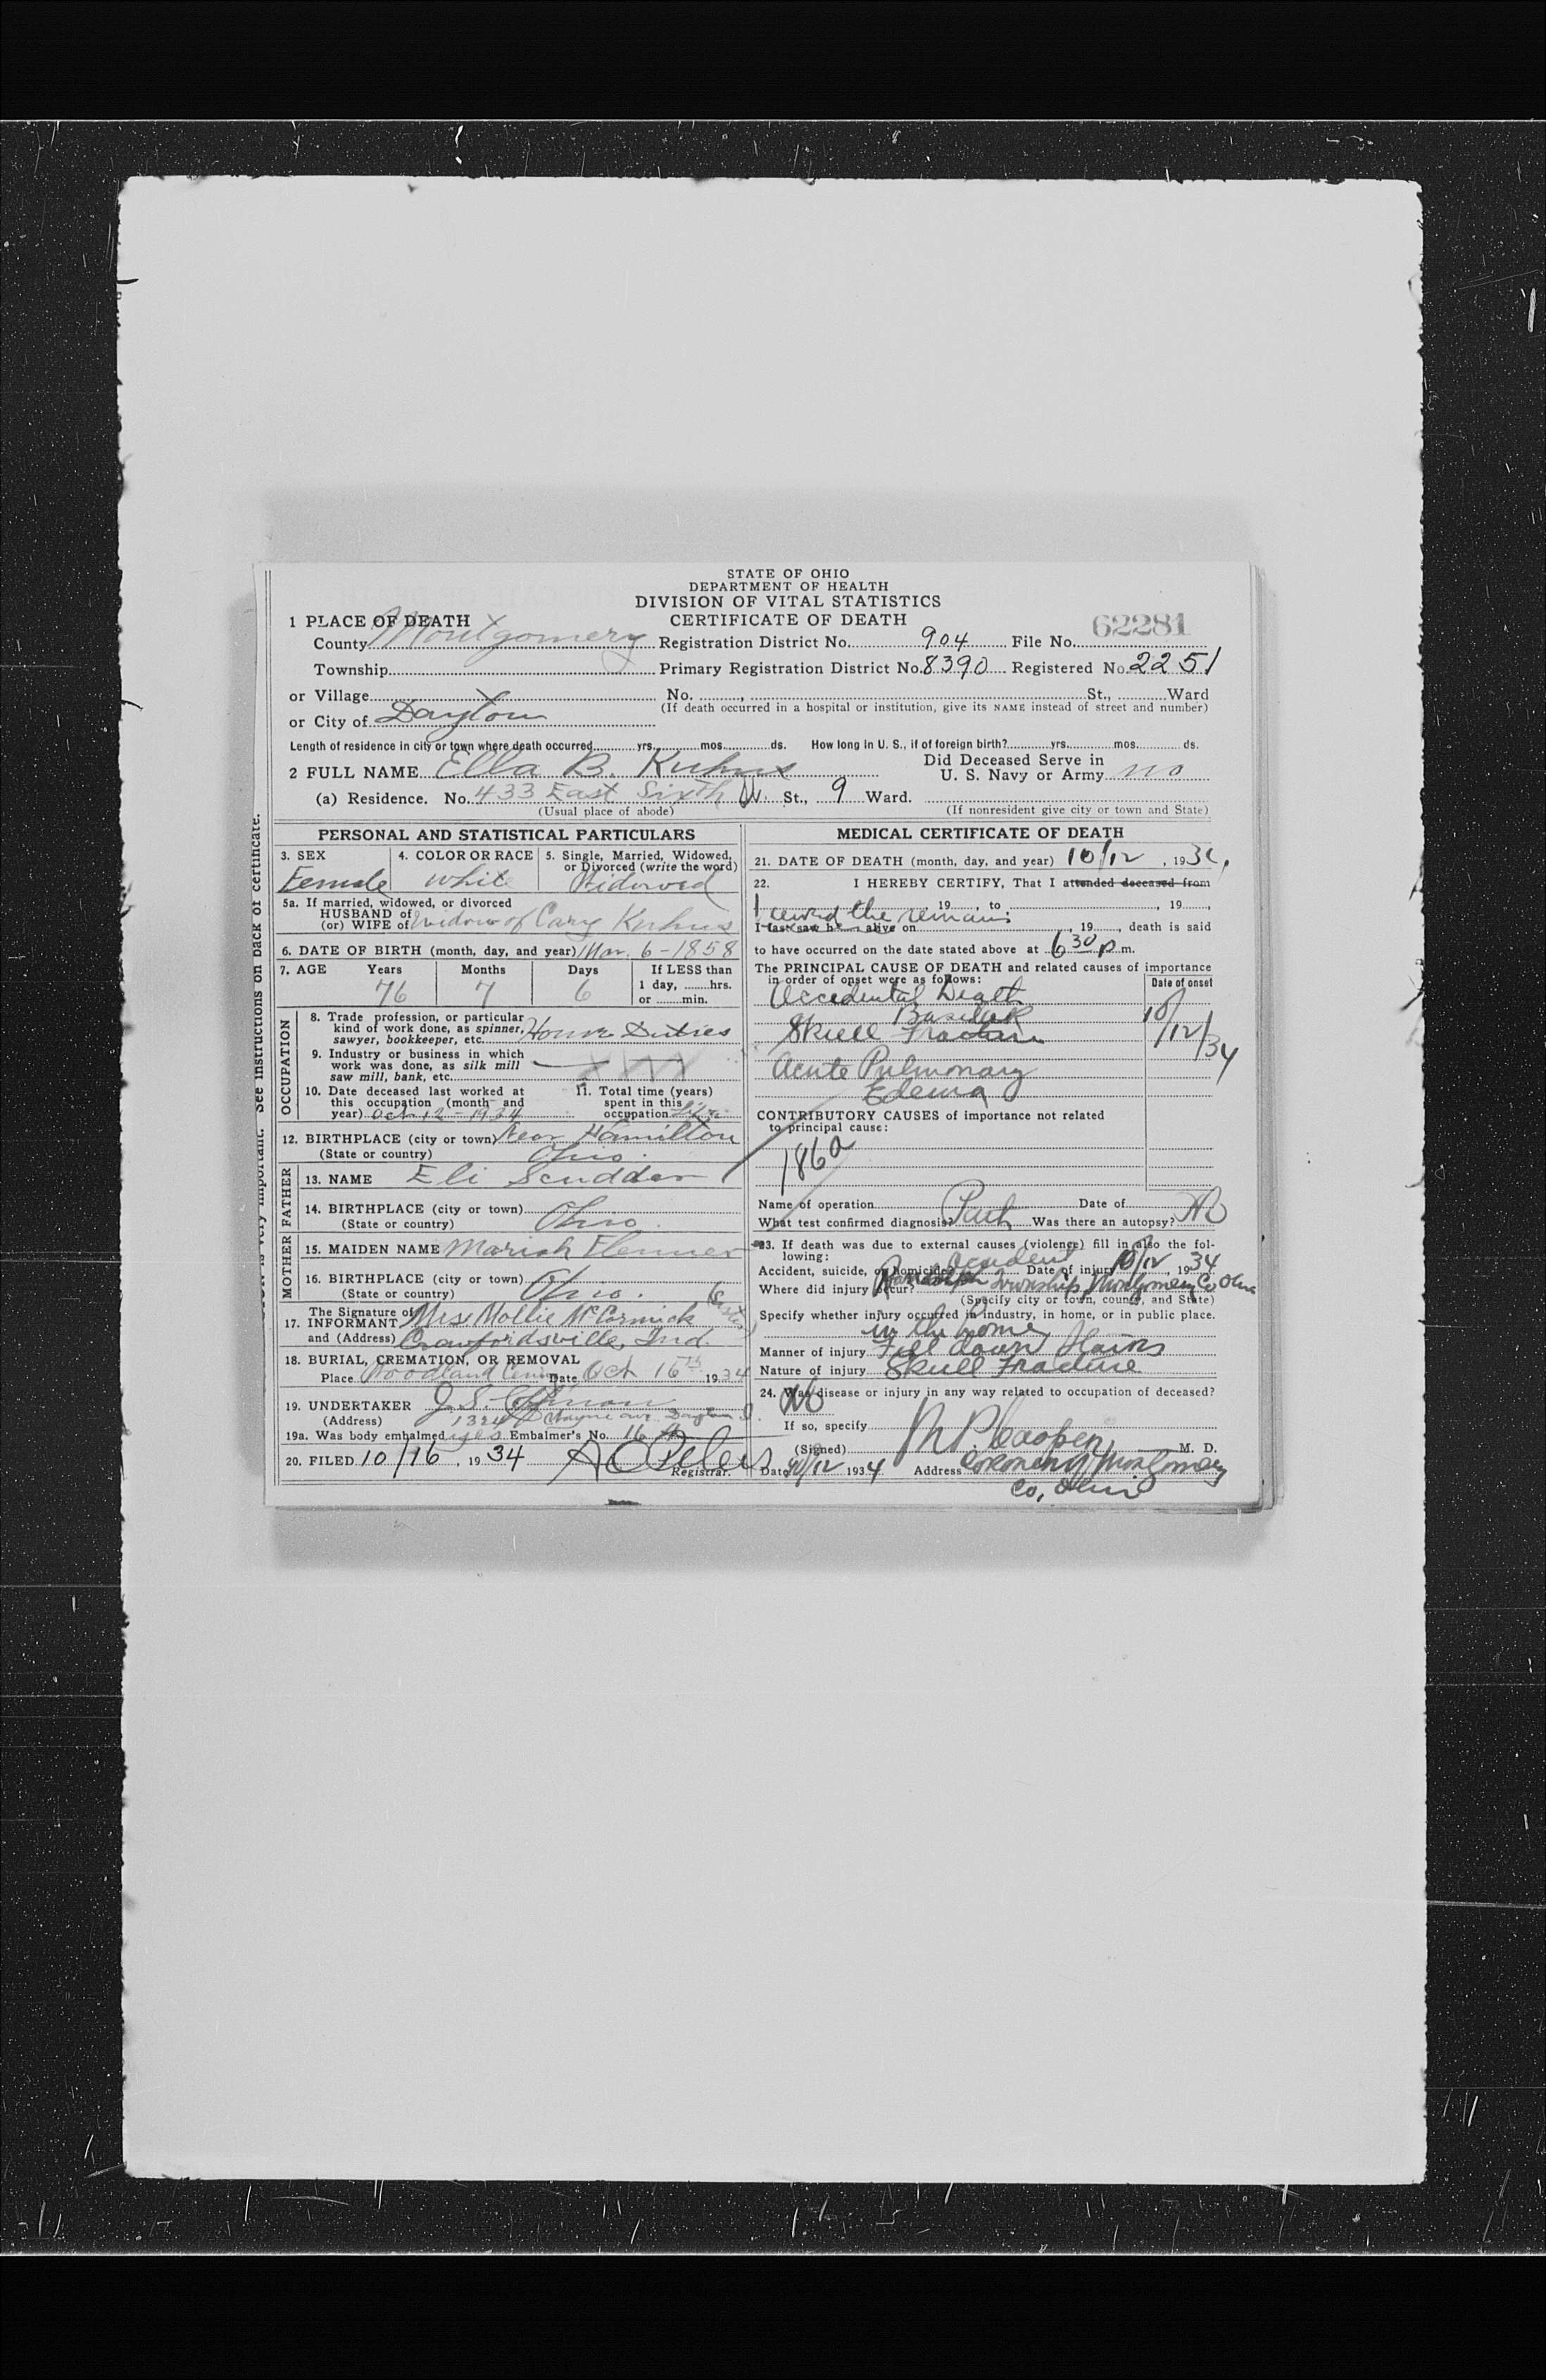 STATE OF OHIO
DEPARTMENT OF HEALTH
DIVISION OF VITAL STATISTICS
CERTIFICATE OF DEATH
1 PLACE OF DEATH
County Montgomery Registration District No. 904 File No. 62281
Township Primary Registration District No. 8390 Registered No. 2251
or Village No. , St., Ward
(If death occurred in a hospital or institution, give its NAME instead of street and number)
or City of Dayton
Length of residence in city or town where death occurred yrs. mos. ds. How long in U. S., if of foreign birth? yrs. mos. ds.
2 FULL NAME Ella B. Kuhns Did Deceased Serve in U. S. Navy or Army no
(a) Residence. No. 433 East Sixth St., 9 Ward.
(Usual place of abode) (If nonresident give city or town and State)
See instructions on back of certificate.
PERSONAL AND STATISTICAL PARTICULARS
3. SEX Female
4. COLOR OR RACE White
5. Single, Married, Widowed, or Divorced (write the word) Widowed
5a. If married, widowed, or divorced
HUSBAND of
(or) WIFE of Widow of Cary Kuhns
6. DATE OF BIRTH (month, day, and year) Mar. 6-1858
7. AGE Years Months Days If LESS than
76 7 6 1 day, hrs.
or min.
OCCUPATION
8. Trade profession, or particular
kind of work done, as spinner,
sawyer, bookkeeper, etc. House Duties
9. Industry or business in which
work was done, as silk mill
saw mill, bank, etc.
10. Date deceased last worked at
this occupation (month and
year) Oct 12-1934
11. Total time (years)
spent in this
occupation Life
12. BIRTHPLACE (city or town) Near Hamilton
(State or country) Ohio.
FATHER
13. NAME Eli Scudder
14. BIRTHPLACE (city or town)
(State or country) Ohio.
MOTHER
15. MAIDEN NAME Mariah Flenner
16. BIRTHPLACE (city or town)
(State or country) Ohio.
The Signature of
17. INFORMANT Mrs Mollie McCormick (Sister)
and (Address) Crawfordsville, Ind.
18. BURIAL, CREMATION, OR REMOVAL
Place Woodland Cem Date Oct 16th 1934
19. UNDERTAKER J. S.
(Address) 1324 Wayne ave. Dayton O.
19a. Was body embalmed yes Embalmer's No. 16
20. FILED 10/16, 1934 A O Peters
Registrar.
MEDICAL CERTIFICATE OF DEATH
21. DATE OF DEATH (month, day, and year) 10/12, 1934
22. I HEREBY CERTIFY, That I attended deceased from
I viewed the remains , 19 , to , 19 ,
I last saw h alive on , 19 , death is said
to have occurred on the date stated above at 6 30 p m.
The PRINCIPAL CAUSE OF DEATH and related causes of importance
in order of onset were as follows:
Date of onset
Accidental Death
Basilar
Skull Fracture
10/12/34
Acute Pulmonary
Edema
CONTRIBUTORY CAUSES of importance not related
to principal cause:
186a
Name of operation Date of
What test confirmed diagnosis? Path Was there an autopsy? No
23. If death was due to external causes (violence) fill in also the following:
Accident, suicide, or homicide? Accident Date of injury 10/12, 1934
Where did injury occur? Randolph Township, Montgomery Co Ohio
(Specify city or town, county, and State)
Specify whether injury occurred in industry, in home, or in public place.
in the home
Manner of injury Fell down stairs
Nature of injury Skull Fracture
24. Was disease or injury in any way related to occupation of deceased?
No
If so, specify
(Signed) M P Cooper M. D.
Date 10/12 1934 Address Coroner of Montgomery
Co, Ohio